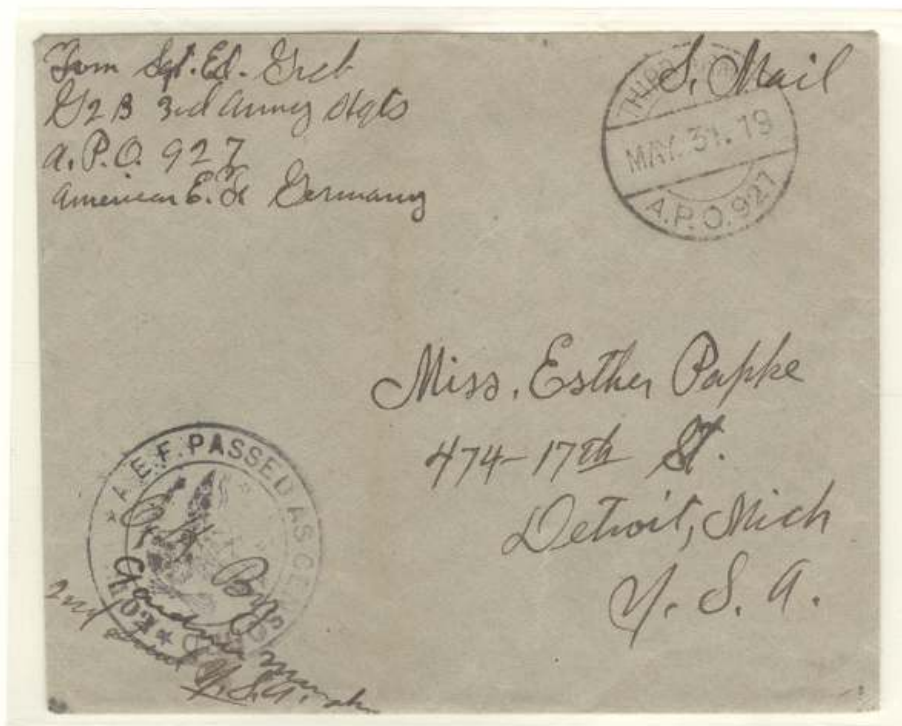 From Sgt. Ed. Greb
G2 B 3rd Army Hqts
A.P.O. 927
American E. F. Germany
S. Mail
THIRD
MAY. 31. 19
A.P.O. 927
Miss. Esther Papke
474-17th St.
Detroit, Mich
U. S. A.
A.E.F. PASSED AS CENSORED
O.K. By
2nd Lieut U.S.A.